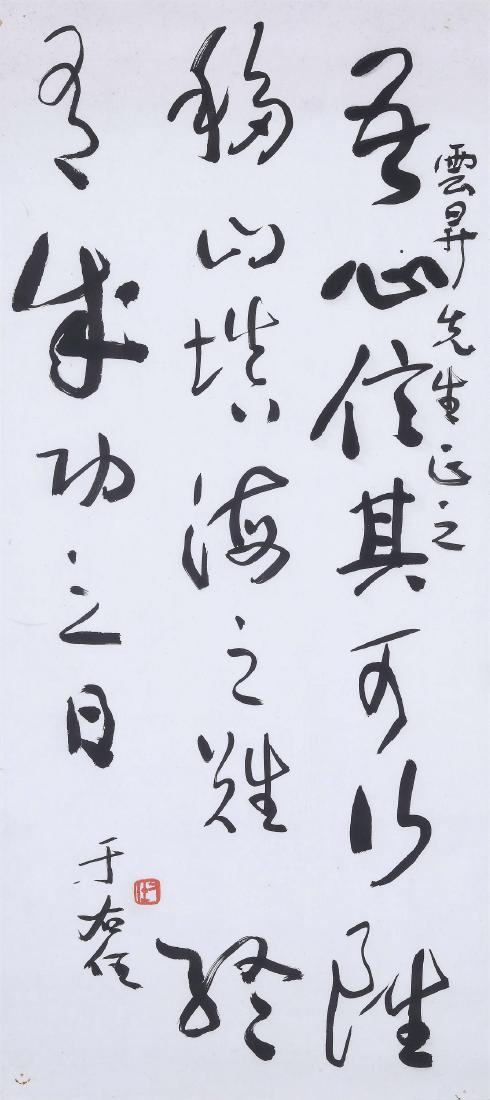 雲昇先生正之
吾心信其可行雖
移山填海之難終
有成功之日
于右任